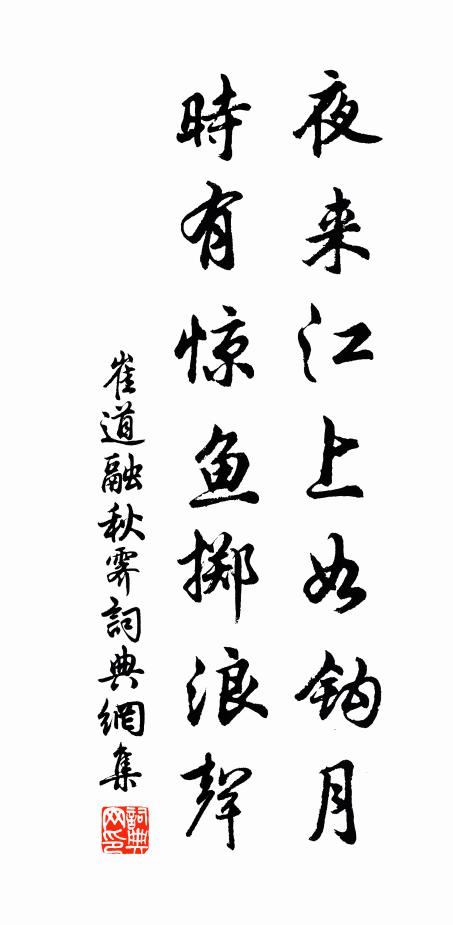 夜来江上如钩月
時有惊鱼掷浪聲
崔道融秋霽詞典網集
詞典网印